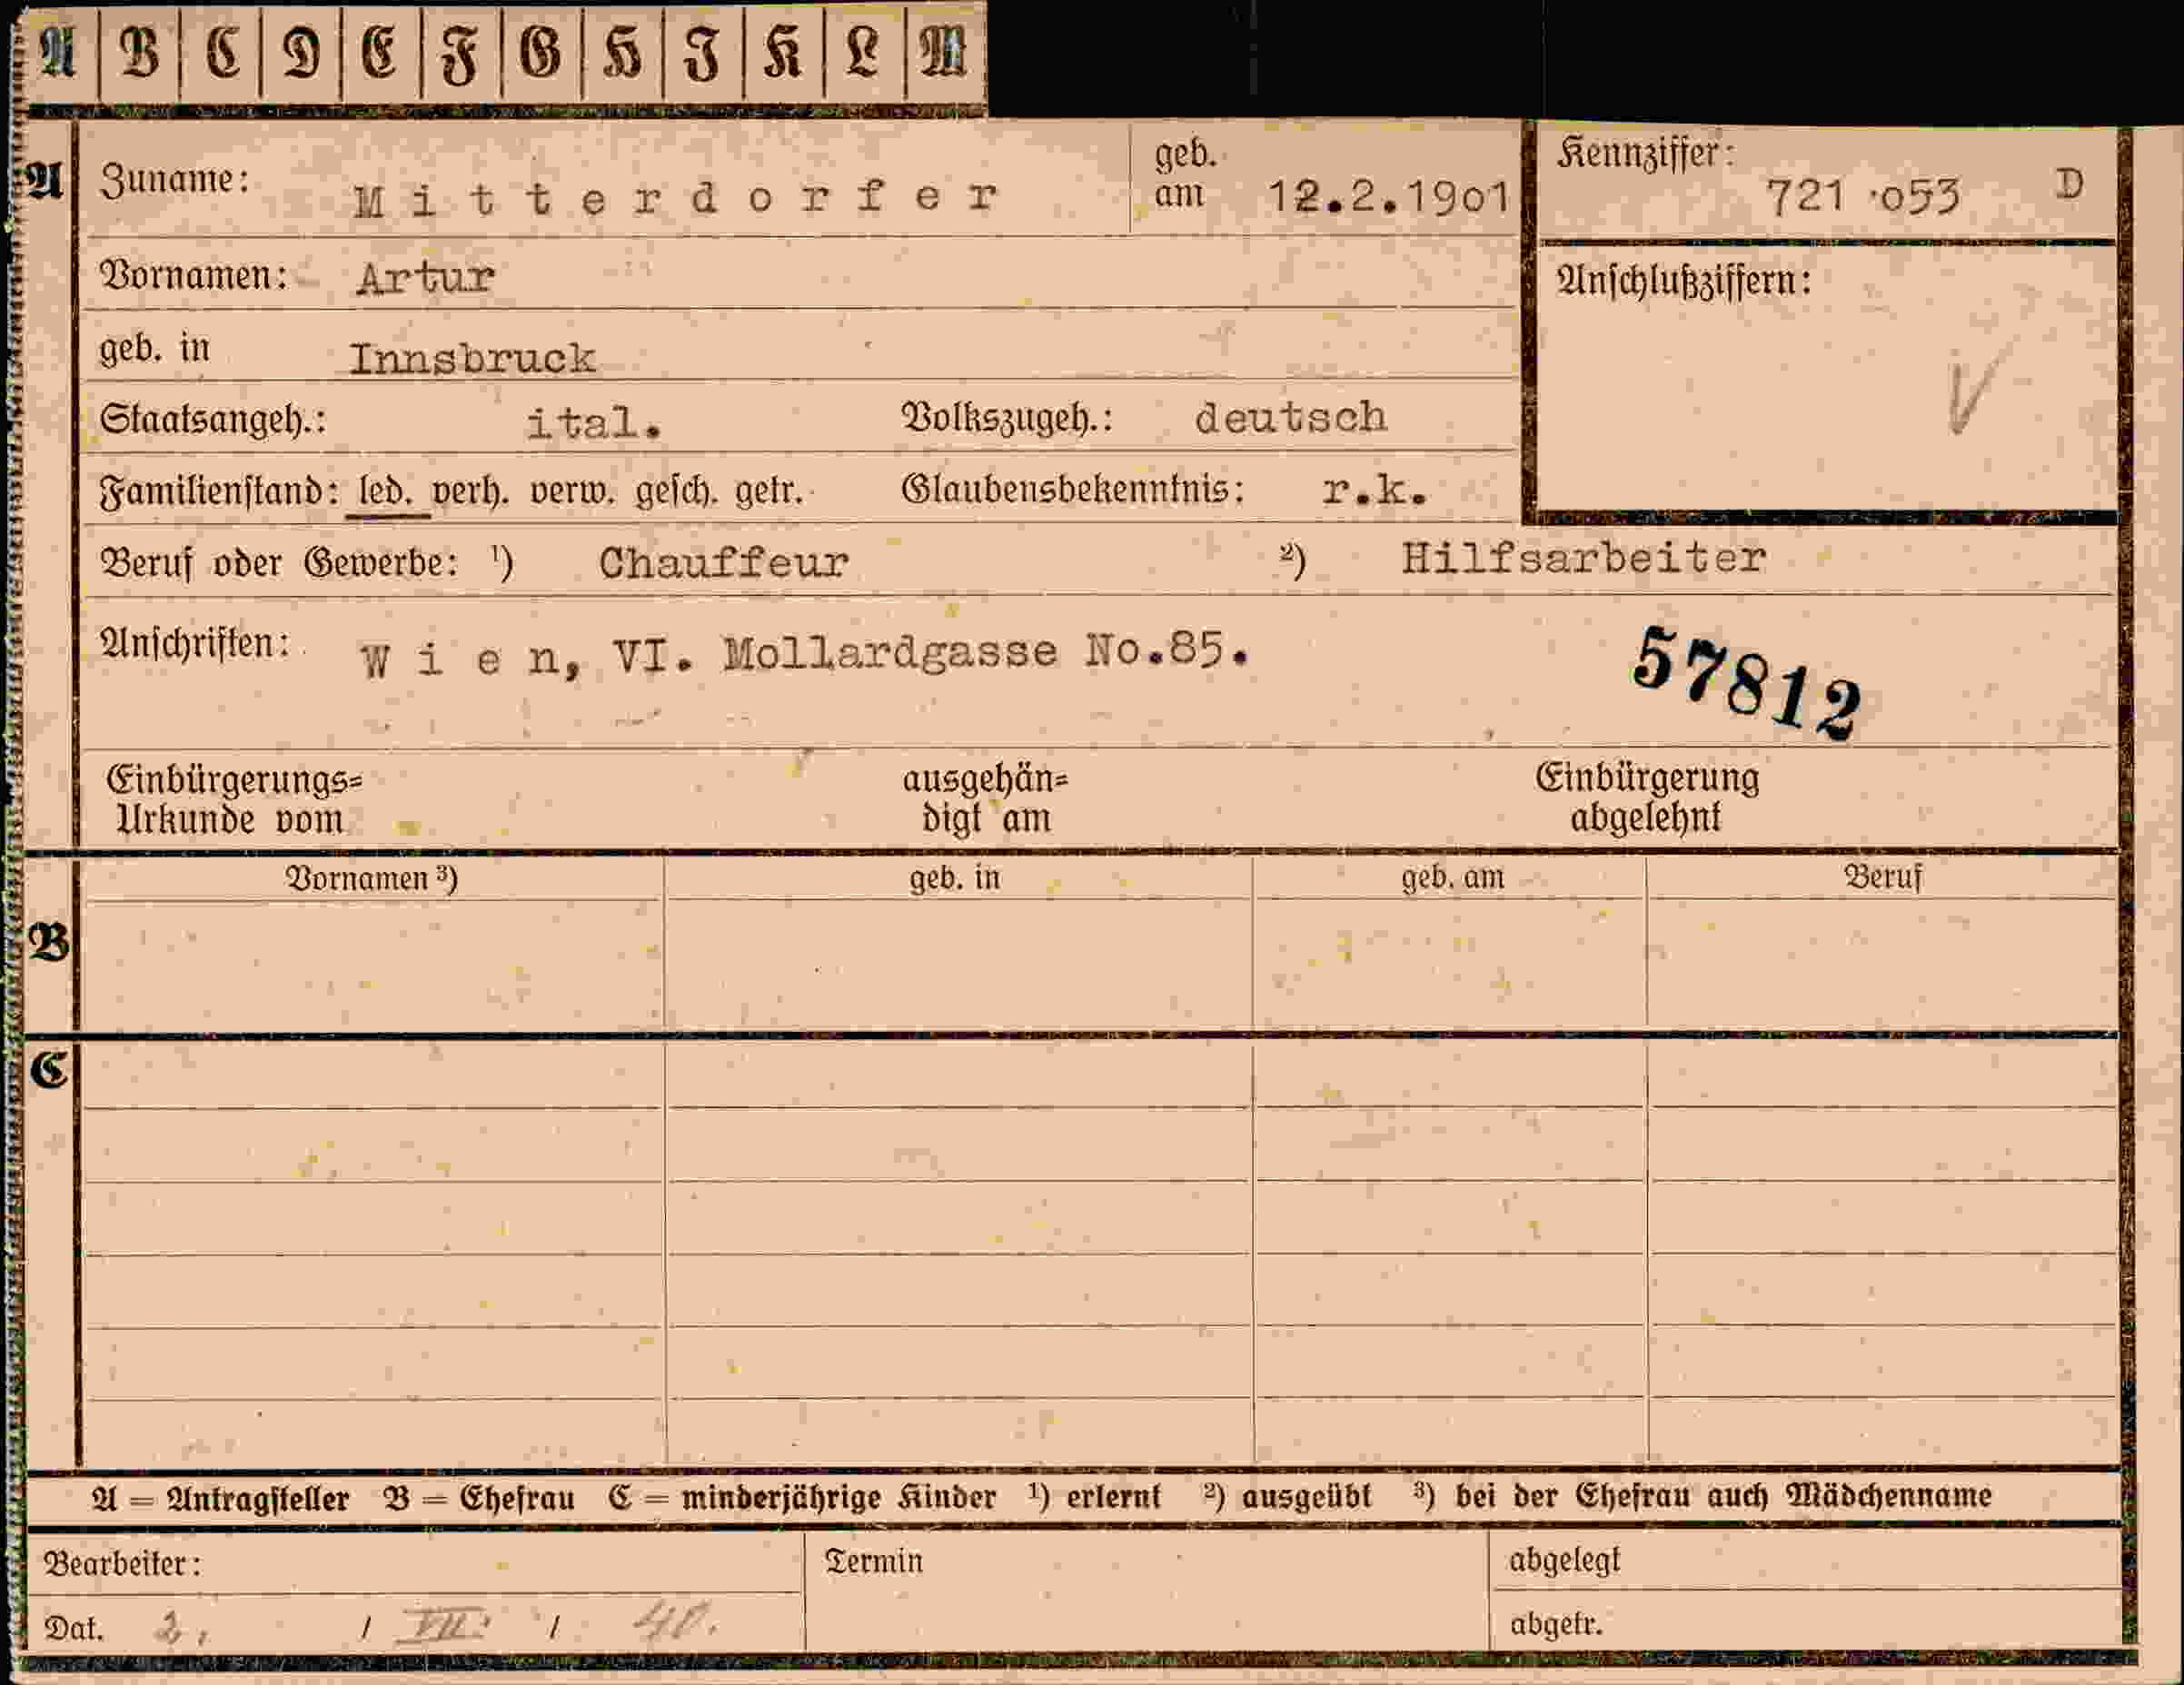 A B C D E F G H I K L M
A Zuname: Mitterdorfer geb. am 12.2.1901 Kennziffer: 721 053 D
Vornamen: Artur Anschlußziffern:
geb. in Innsbruck
Staatsangeh.: ital. Volkszugeh.: deutsch
Familienstand: led. verh. verw. gesch. getr. Glaubensbekenntnis: r.k.
Beruf oder Gewerbe: ¹) Chauffeur ²) Hilfsarbeiter
Anschriften: Wien, VI. Mollardgasse No.85. 57812
Einbürgerungs= ausgehän= Einbürgerung
Urkunde vom digt am abgelehnt
Vornamen ³) geb. in geb. am Beruf
B
C
A = Antragsteller B = Ehefrau C = minderjährige Kinder ¹) erlernt ²) ausgeübt ³) bei der Ehefrau auch Mädchenname
Bearbeiter: Termin abgelegt
Dat. 2. / VII. / 40. abgetr.